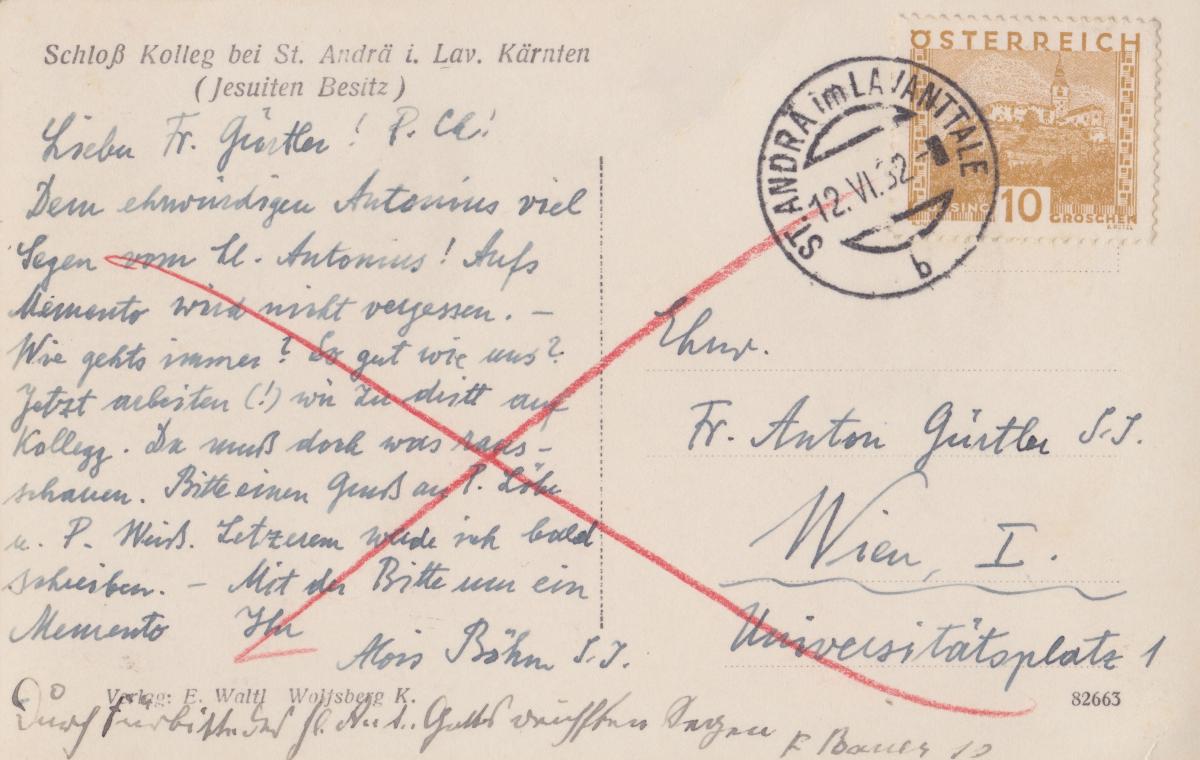 Schloß Kolleg bei St. Andrä i. Lav. Kärnten
(Jesuiten Besitz)
Lieber Fr. Gürtler! P. Ch!
Dem ehrwürdigen Antonius viel
Segen vom hl. Antonius! Aufs
Memento wird nicht vergessen. –
Wie gehts immer? So gut wie uns?
Jetzt arbeiten (!) wir zu dritt auf
Kollegg. Da muß doch was raus-
schauen. Bitte einen Gruß an P. Löhr
u. P. Weiß. Letzerem werde ich bald
schreiben. – Mit der Bitte um ein
Memento Ihr
Alois Böhm S.J.
Verlag: E. Waltl Wolfsberg K.
Durch Fürbitte des hl. Ant. Gottes reichsten Segen
F Bauer
ÖSTERREICH
10
GROSCHEN
ST. ANDRÄ im LAVANTTALE
12. VI. 32
b
Ehrw.
Fr. Anton Gürtler S.J.
Wien, I.
Universitätsplatz 1
82663